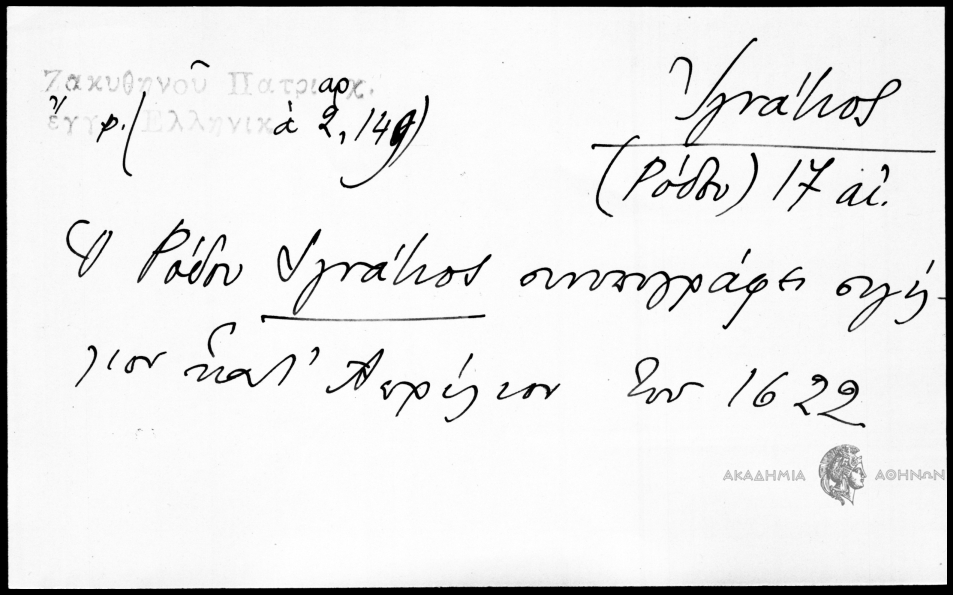 Ζακυθηνοῦ Πατριαρχ.
ἔγγρ. (Ἑλληνικὰ 2, 149)
Ἰγνάτιος
(Ρόδου) 17 αἰ.
Ὁ Ρόδου Ἰγνάτιος συνυπογράφει σιγίλ-
λιον κατ' Ἀπρίλιον του 1622
ΑΚΑΔΗΜΙΑ ΑΘΗΝΩΝ